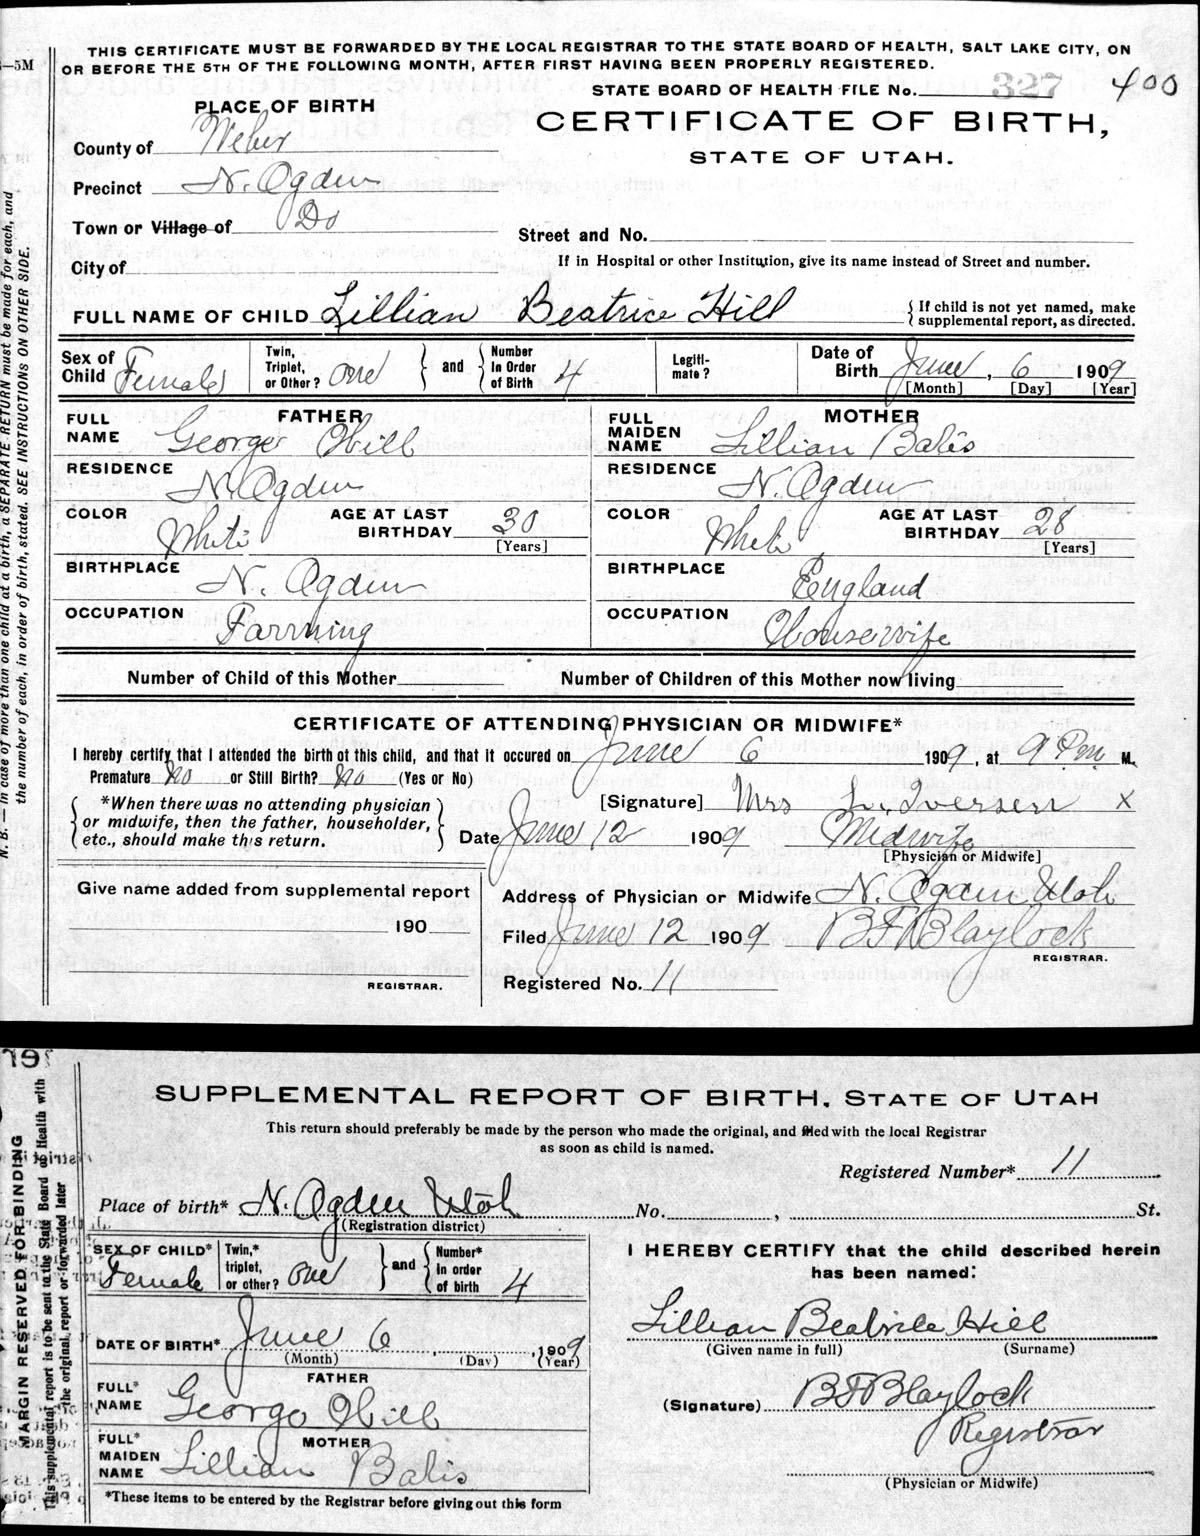 THIS CERTIFICATE MUST BE FORWARDED BY THE LOCAL REGISTRAR TO THE STATE BOARD OF HEALTH, SALT LAKE CITY, ON
OR BEFORE THE 5TH OF THE FOLLOWING MONTH, AFTER FIRST HAVING BEEN PROPERLY REGISTERED.
—5M
STATE BOARD OF HEALTH FILE No. 327 400
PLACE OF BIRTH
CERTIFICATE OF BIRTH,
STATE OF UTAH.
County of Weber
Precinct N. Ogden
Town or Village of Do
Street and No.
City of
If in Hospital or other Institution, give its name instead of Street and number.
FULL NAME OF CHILD Lillian Beatrice Hill { If child is not yet named, make
supplemental report, as directed.
Sex of Child Female Twin, Triplet, or Other? One } and { Number In Order of Birth 4 Legiti-mate? Date of Birth June, 6 1909
[Month] [Day] [Year]
FATHER MOTHER
FULL NAME George Hill FULL MAIDEN NAME Lillian Balis
RESIDENCE N. Ogden RESIDENCE N. Ogden
COLOR White AGE AT LAST BIRTHDAY 30 [Years] COLOR White AGE AT LAST BIRTHDAY 28 [Years]
BIRTHPLACE N. Ogden BIRTHPLACE England
OCCUPATION Farming OCCUPATION Housewife
Number of Child of this Mother Number of Children of this Mother now living
CERTIFICATE OF ATTENDING PHYSICIAN OR MIDWIFE*
I hereby certify that I attended the birth of this child, and that it occured on June 6 1909, at 9 Pm M.
Premature No or Still Birth? No (Yes or No)
{ *When there was no attending physician
or midwife, then the father, householder,
etc., should make this return. }
[Signature] Mrs L. Iversen X
Date June 12 1909 Midwife
[Physician or Midwife]
Give name added from supplemental report
190
REGISTRAR.
Address of Physician or Midwife N. Ogden Utah
Filed June 12 1909 BF Blaylock
REGISTRAR.
Registered No. 11
N. B. — In case of more than one child at a birth, a SEPARATE RETURN must be made for each, and
the number of each, in order of birth, stated. SEE INSTRUCTIONS ON OTHER SIDE.
SUPPLEMENTAL REPORT OF BIRTH, STATE OF UTAH
This return should preferably be made by the person who made the original, and filed with the local Registrar
as soon as child is named.
Registered Number* 11
Place of birth* N. Ogden Utah No. , St.
(Registration district)
SEX OF CHILD* Female Twin,* triplet, or other? One } and { Number* In order of birth 4
DATE OF BIRTH* June 6, 1909
(Month) (Day) (Year)
FATHER
FULL* NAME George Hill
MOTHER
FULL* MAIDEN NAME Lillian Balis
*These items to be entered by the Registrar before giving out this form
I HEREBY CERTIFY that the child described herein
has been named:
Lillian Beatrice Hill
(Given name in full) (Surname)
(Signature) BF Blaylock
Registrar
(Physician or Midwife)
MARGIN RESERVED FOR BINDING
This supplemental report is to be sent to the State Board of Health with
the original report or forwarded later